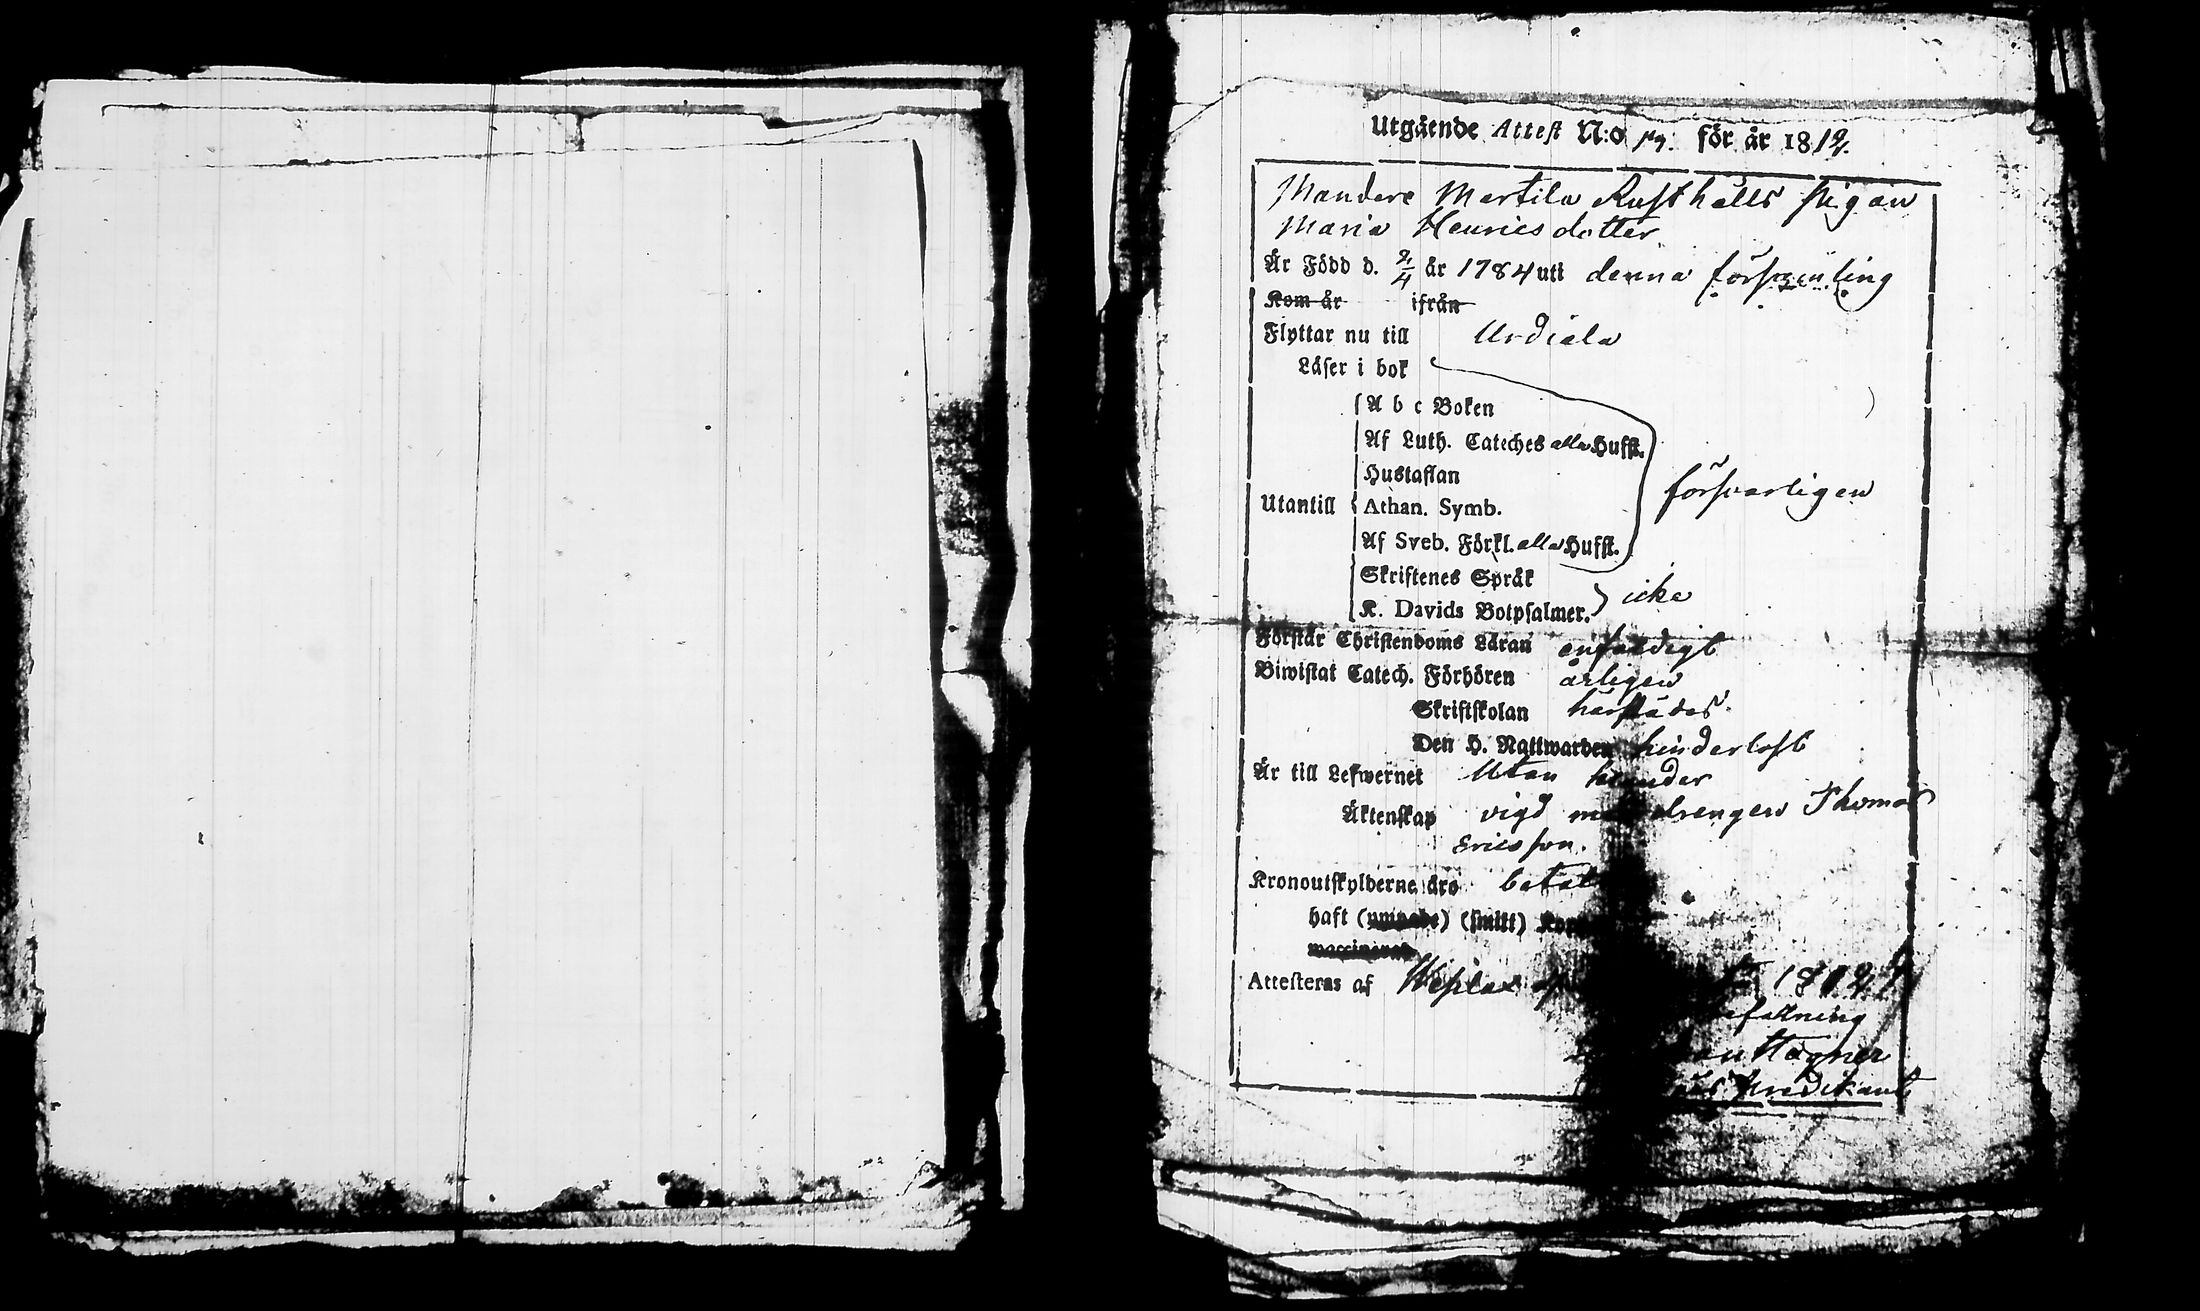 Utgående Attest N:o 17. för år 1812.
Mandere Martila Rusthålls pigan
Maria Henricsdotter
Är Född d. 2/4 år 1784 uti denna församling
Kom år ifrån
Flyttar nu till Urdiala
Läser i bok
A b c Boken
Af Luth. Cateches alla Hufst.
Hustaflan
försvarligen
Utantill Athan. Symb.
Af Sveb. Förkl. alla Hufst.
Skriftenes Språk
K. Davids Botpsalmer. icke
Förstår Christendoms Läran enfaldigt
Biwistat Catech. Förhören årligen
Skriftskolan härstädes
Den H. Nattwarden hinderlöst
Är till Lefwernet utan klander
Äktenskap vigd med drengen Thomas
Ericsson.
Kronoutskylderne äro
haft (ympade) (smitt)
Attesteras af
Hagner
Predikant